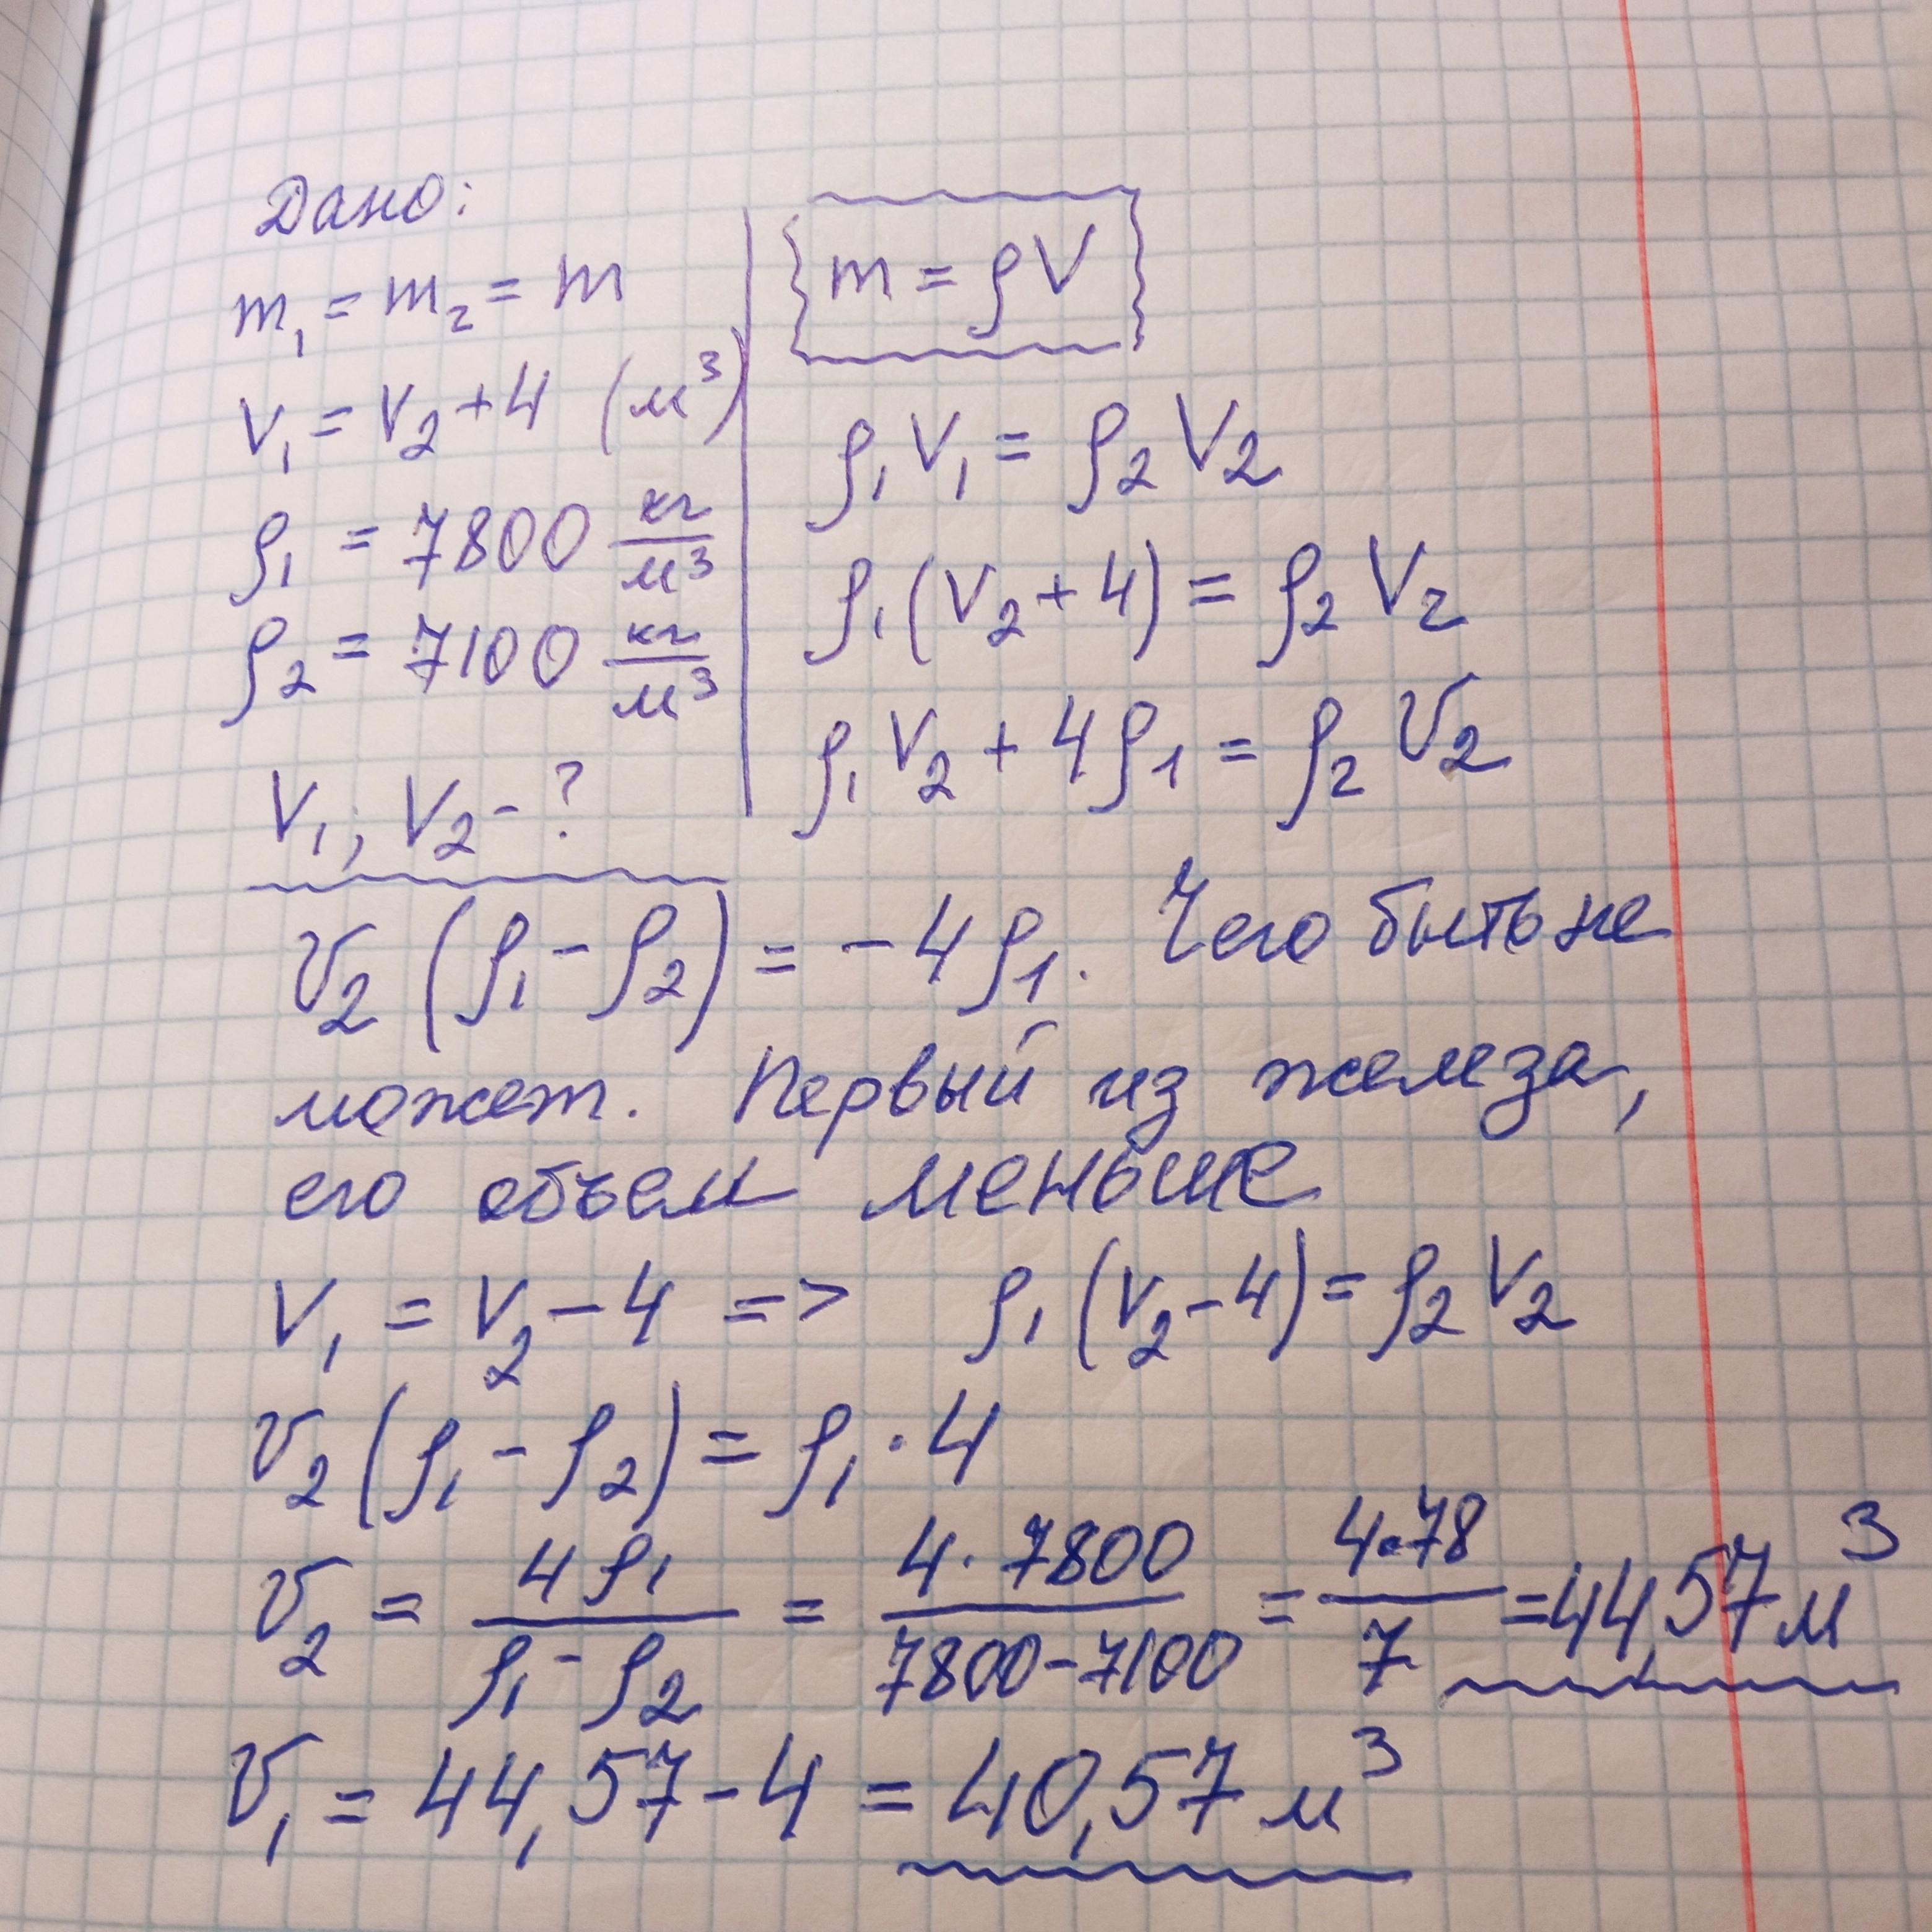 Дано:
m₁ = m₂ = m
V₁ = V₂ + 4 (м³)
ρ₁ = 7800 кг/м³
ρ₂ = 7100 кг/м³
V₁; V₂ - ?
m = ρV
ρ₁V₁ = ρ₂V₂
ρ₁(V₂ + 4) = ρ₂V₂
ρ₁V₂ + 4ρ₁ = ρ₂V₂
V₂(ρ₁ - ρ₂) = -4ρ₁. Чего быть не
может. Первый из железа,
его объем меньше
V₁ = V₂ - 4 => ρ₁(V₂ - 4) = ρ₂V₂
V₂(ρ₁ - ρ₂) = ρ₁ · 4
V₂ = 4ρ₁/(ρ₁ - ρ₂) = 4 · 7800/(7800 - 7100) = 4·78/7 = 44,57 м³
V₁ = 44,57 - 4 = 40,57 м³